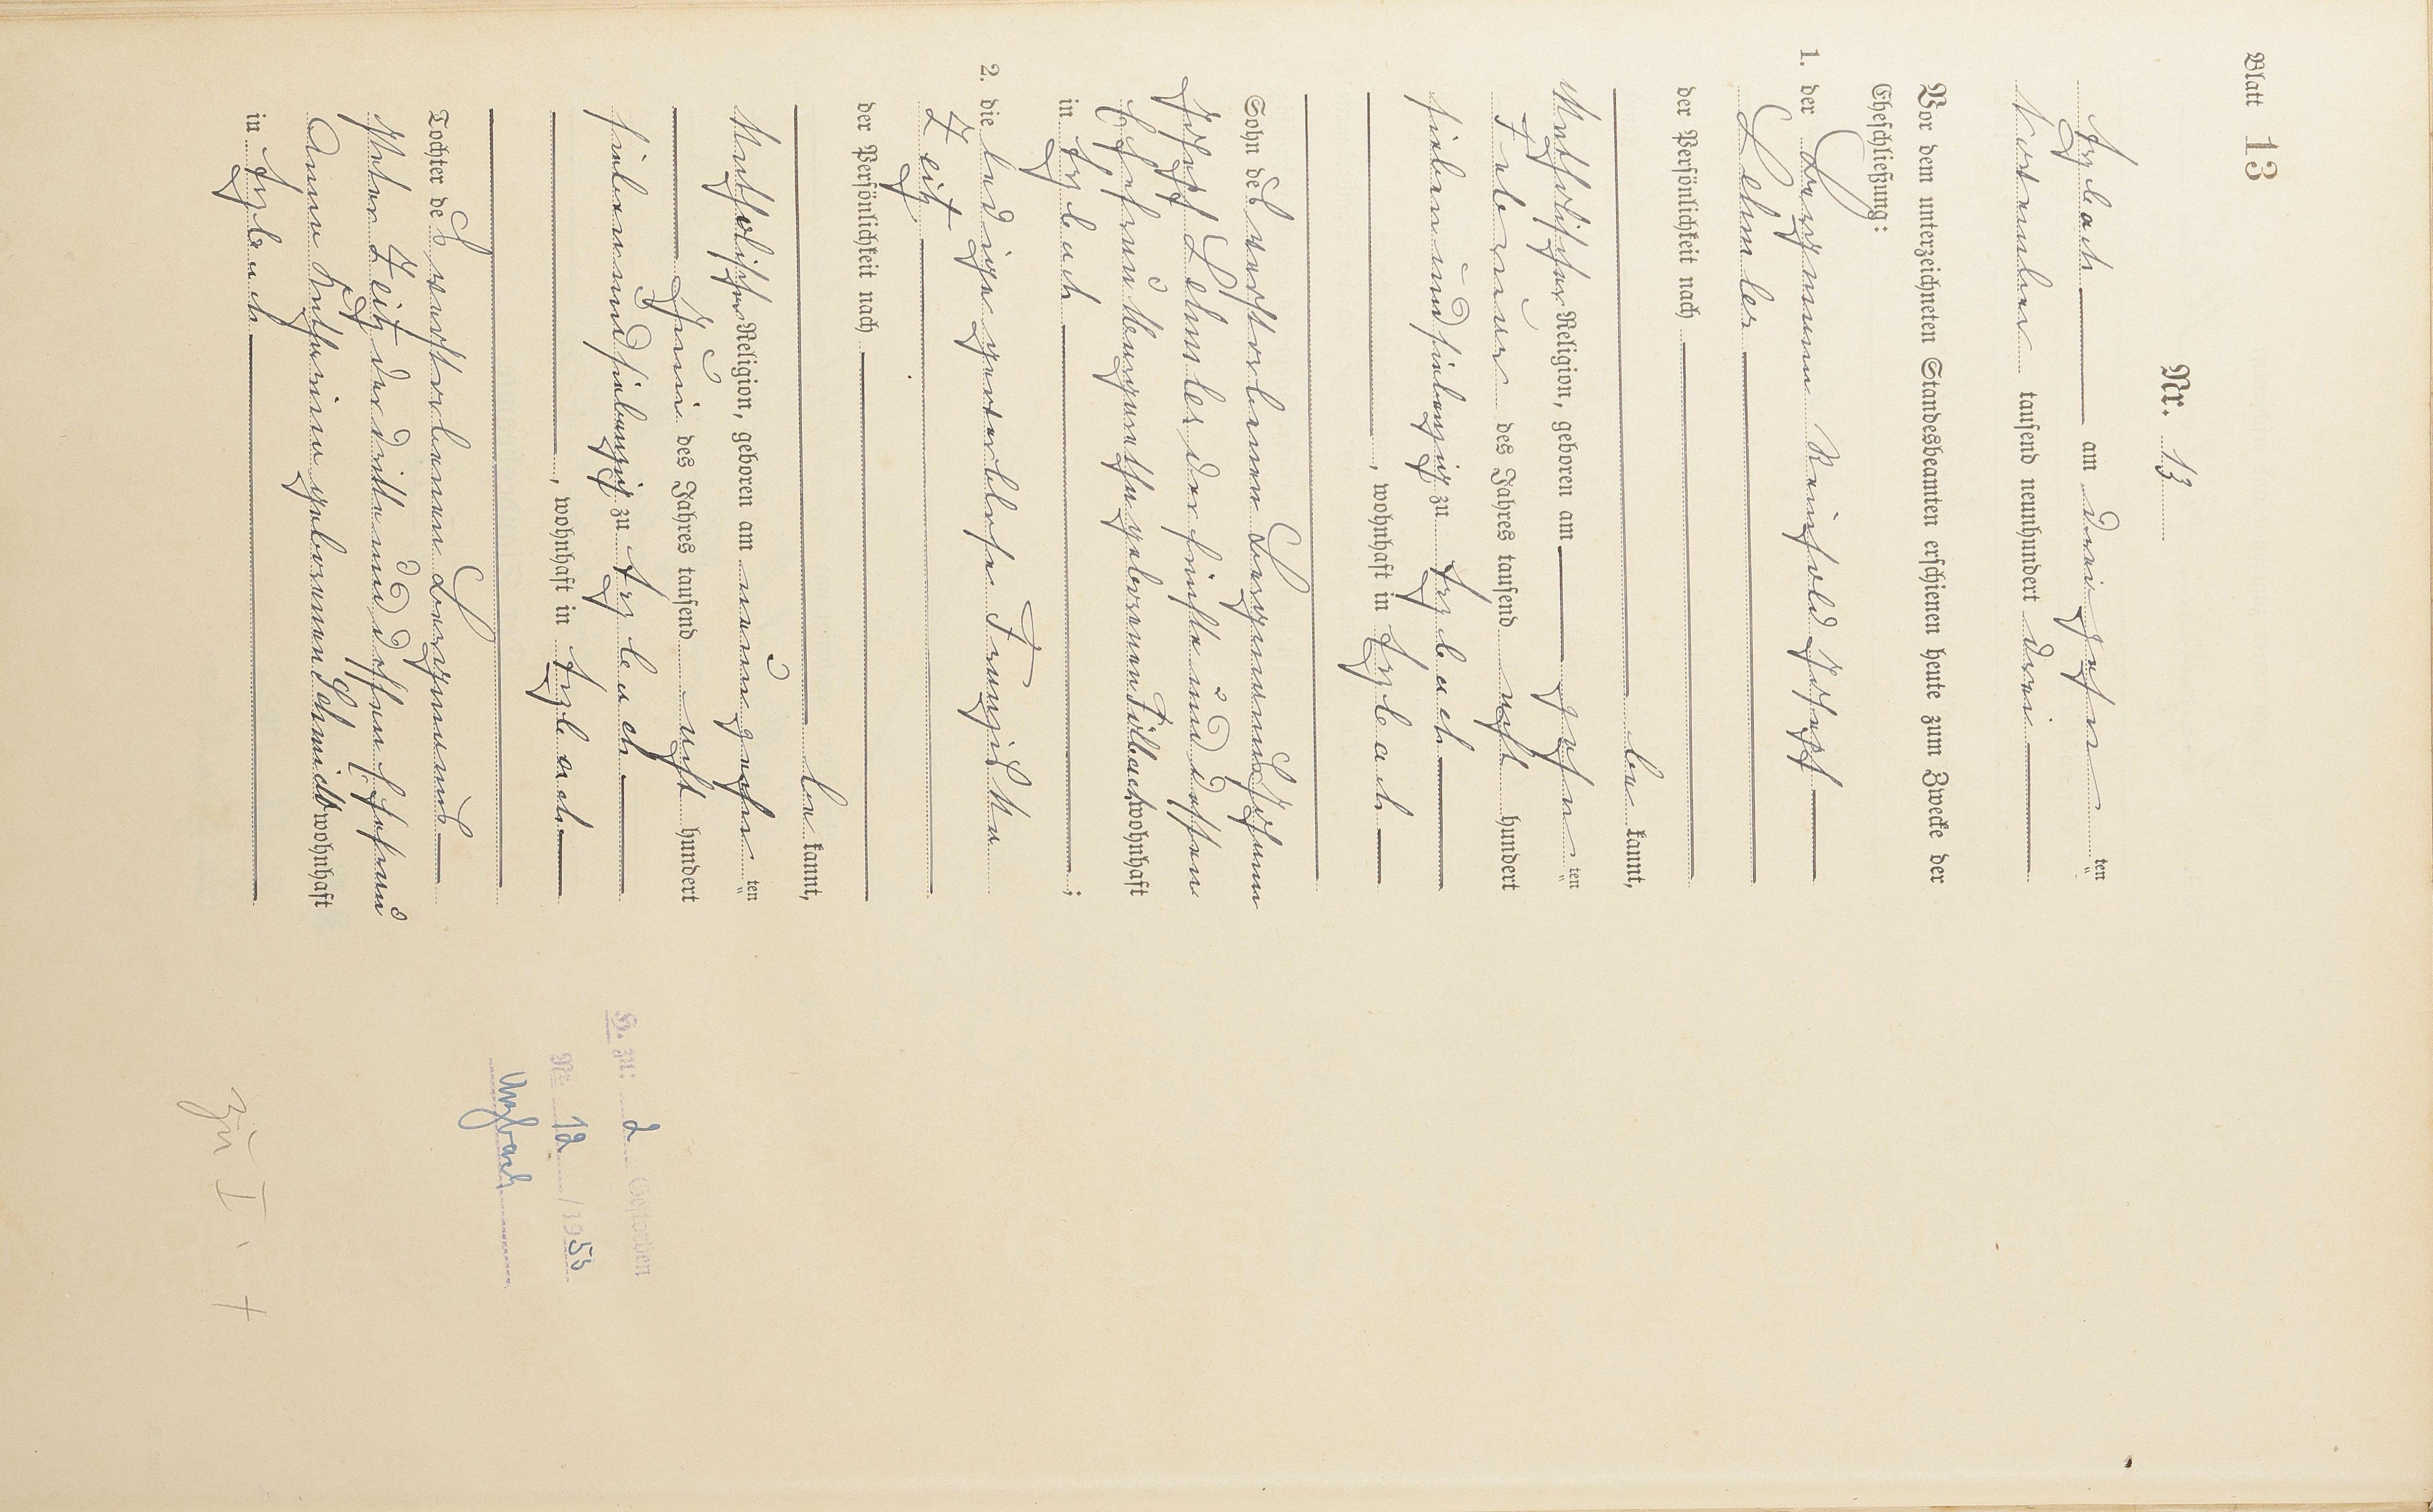 Blatt 13
Nr. 13
Arzbach am dreizehn ten
November tausend neunhundert drei
Vor dem unterzeichneten Standesbeamten erschienen heute zum Zwecke der
Eheschließung:
1. der Bergmann Reinhold Joseph
Lehmler
der Persönlichkeit nach
be kannt,
katholischer Religion, geboren am zehn ten
Februar des Jahres tausend acht hundert
siebenundsiebenzig zu Arzbach
, wohnhaft in Arzbach
Sohn des verstorbenen Bergmanns Johann
Joseph Lehmler der fünfte und dessen
Ehefrau Margaretha geborenen Fillbach wohnhaft
in Arzbach ;
2. die ledige gewerblose Franziska
Zeitz
der Persönlichkeit nach
be kannt,
katholischer Religion, geboren am neunzehn ten
Juni des Jahres tausend acht hundert
siebenundsiebenzig zu Arzbach
, wohnhaft in Arzbach
Tochter des verstorbenen Bergmanns
Peter Zeitz der dritte und dessen Ehefrau
Anna Katharina geborenen Schmidt wohnhaft
in Arzbach
H. zu: 2 Gestorben
Nr. 12 /1953
Arzbach
zu I. +